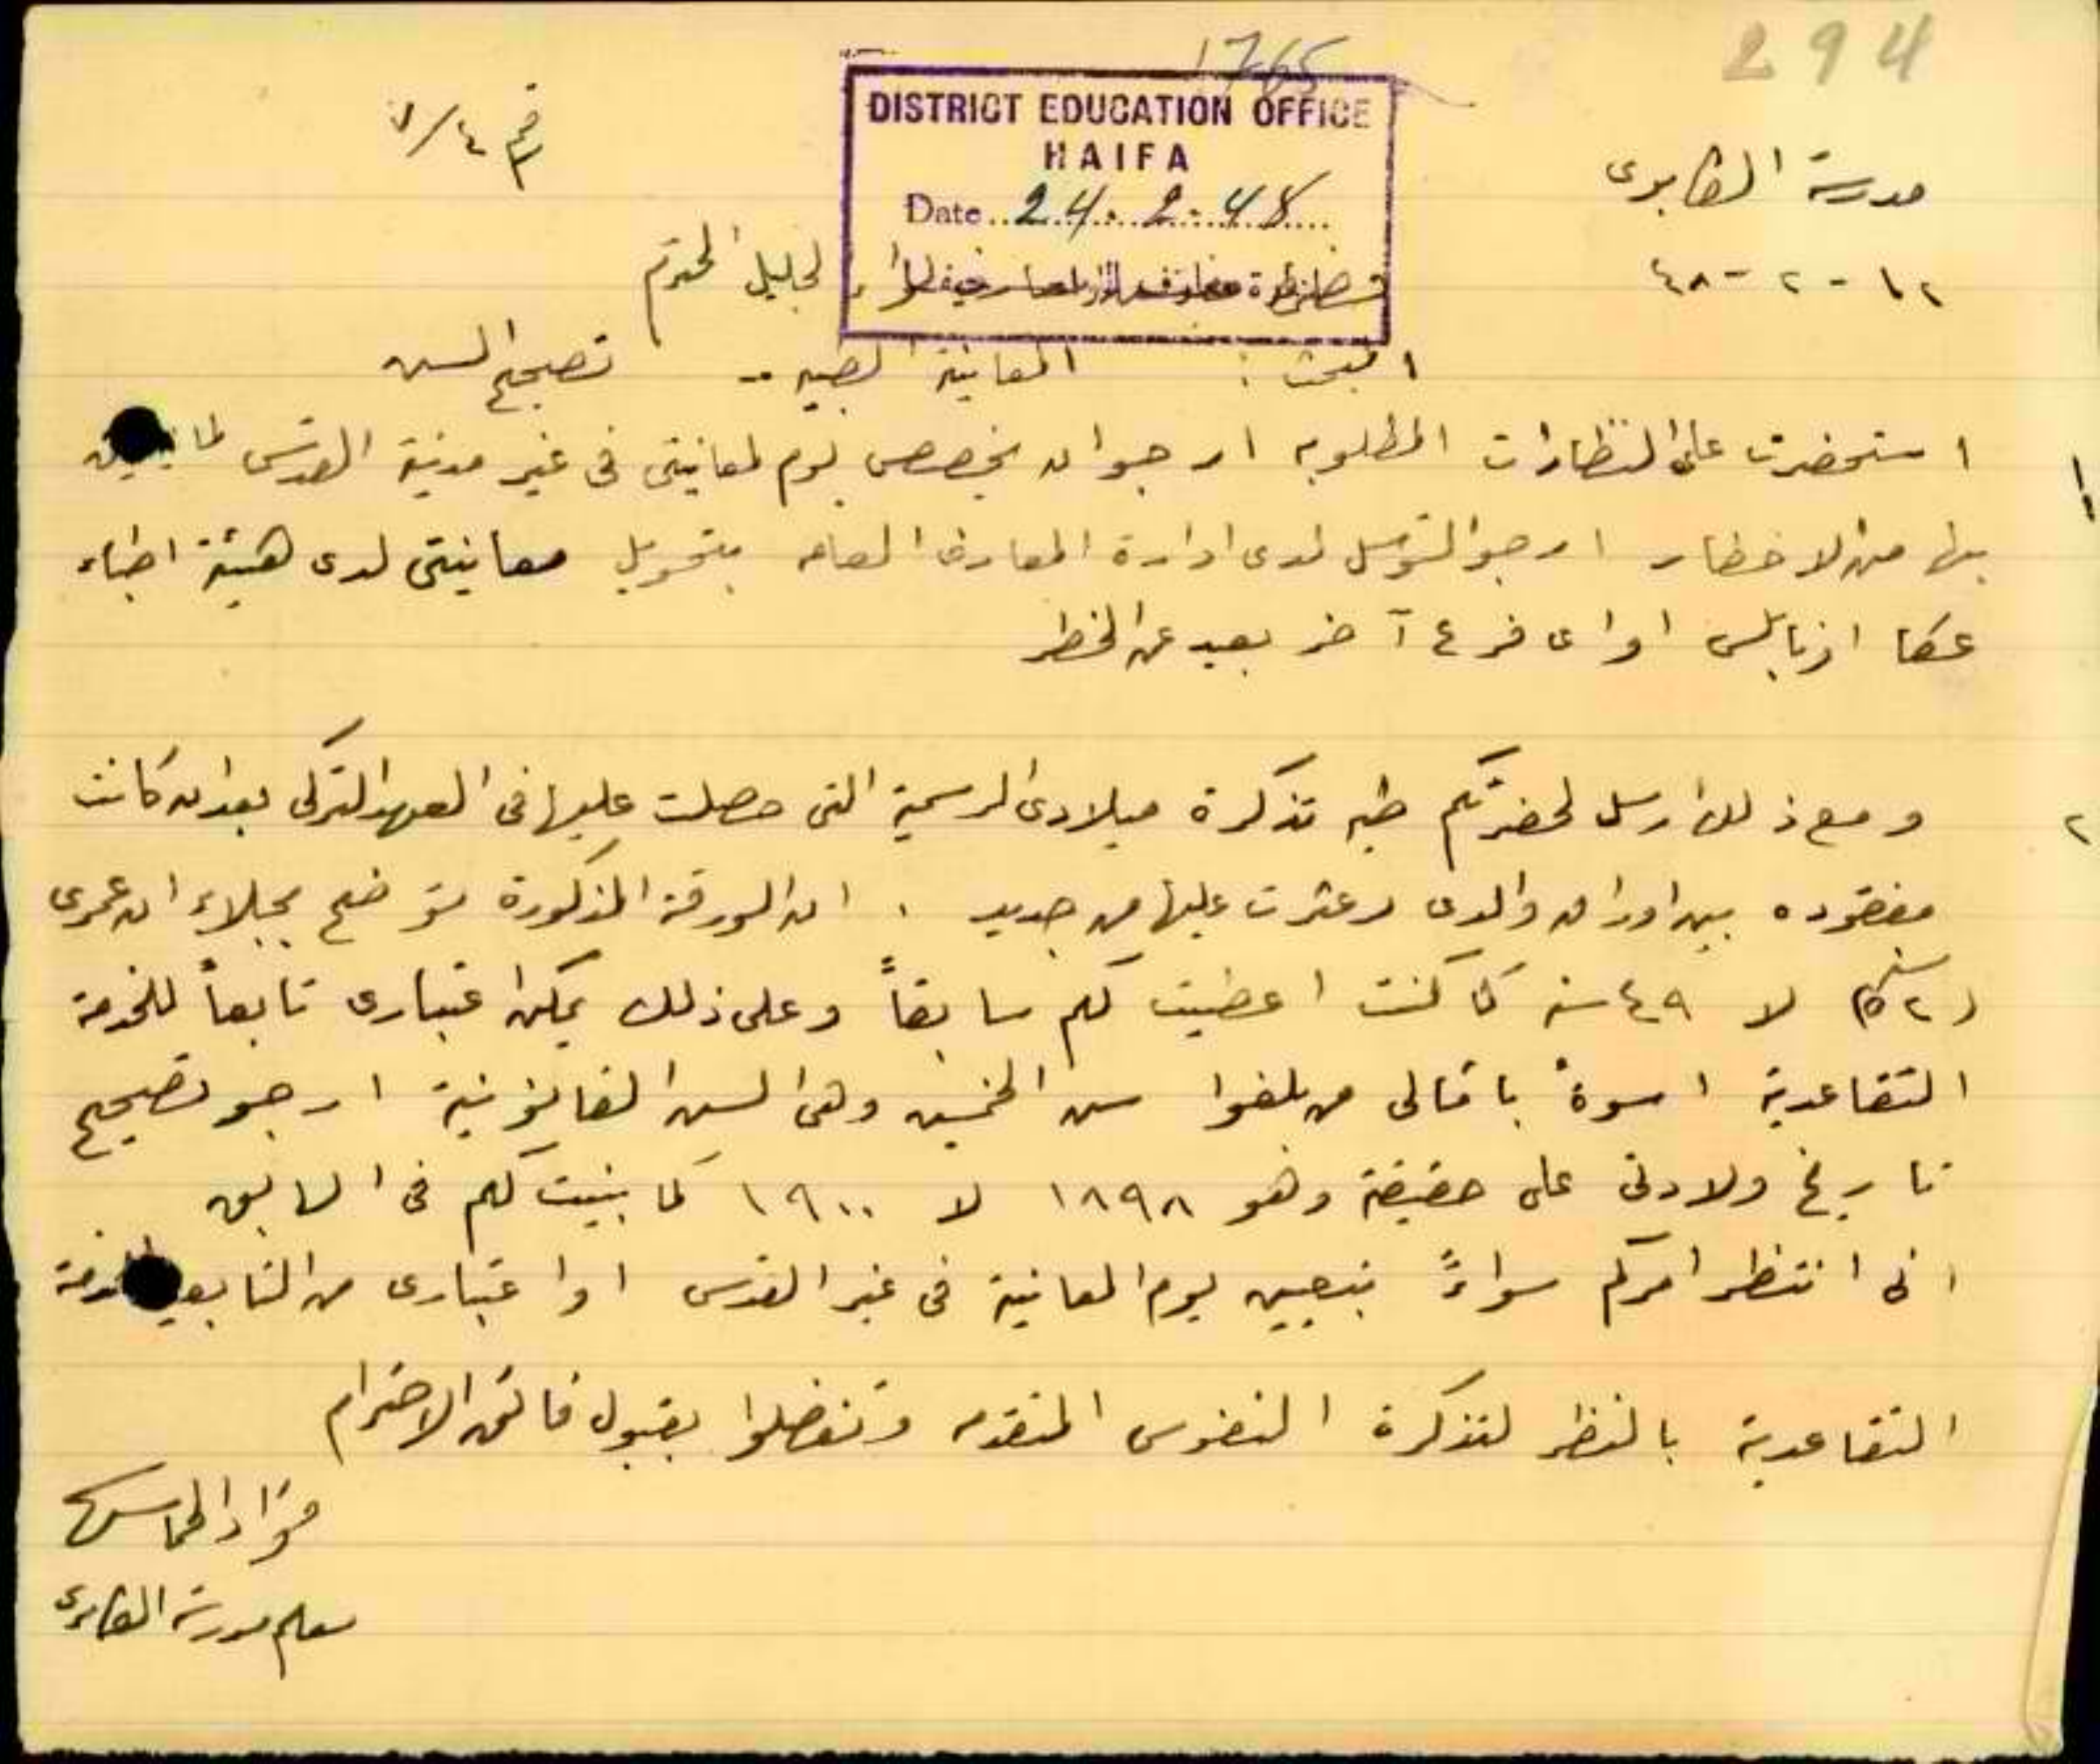 294
1765
DISTRICT EDUCATION OFFICE
HAIFA
Date 24.2.48
مدرسة الكابرى
رقم ٧/٤
١٢-٢-٤٨
الجليل المحترم
البحث : المعاينة الطبيه -- تصحيح السن
١ استحضرت على النظارات المطلوبه ارجو ان يخصص يوم لمعاينتى فى غير مدينة القدس لما
بها من الاخطار ارجو التوسل لدى ادارة المعارف العامه بتحويل معاينتى لدى هيئة اطباء
عكا او نابلس او اى فرع آخر بعيد عن الخطر
٢ ومع ذلك ارسل لحضرتكم طيه تذكرة ميلادى الرسمية التى حصلت عليها فى العهد التركى بعد ان كانت
مفقوده بين اوراق والدى وعثرت عليها من جديد . ان الورقة المذكورة توضح بجلاء ان عمرى
(٥٢ سنة) لا ٤٩ سنه كما كنت اعطيت لكم سابقاً وعلى ذلك يمكن اعتبارى تابعاً للخدمة
التقاعدية اسوةً بامثالى من بلغوا سن الخمسين وهى السن القانونية ارجو تصحيح
تاريخ ولادتى على حقيقته وهو ١٨٩٨ لا ١٩٠٠ كما بينيت لكم فى السابق
انى انتظر امركم سواءً بتعيين يوم المعاينة فى غير القدس او اعتبارى من التابعين للخدمة
التقاعدية بالنظر لتذكرة النفوس المتقدمه وتفضلوا بقبول فائق الاحترام
فؤاد
معلم مدرسة الكابرى